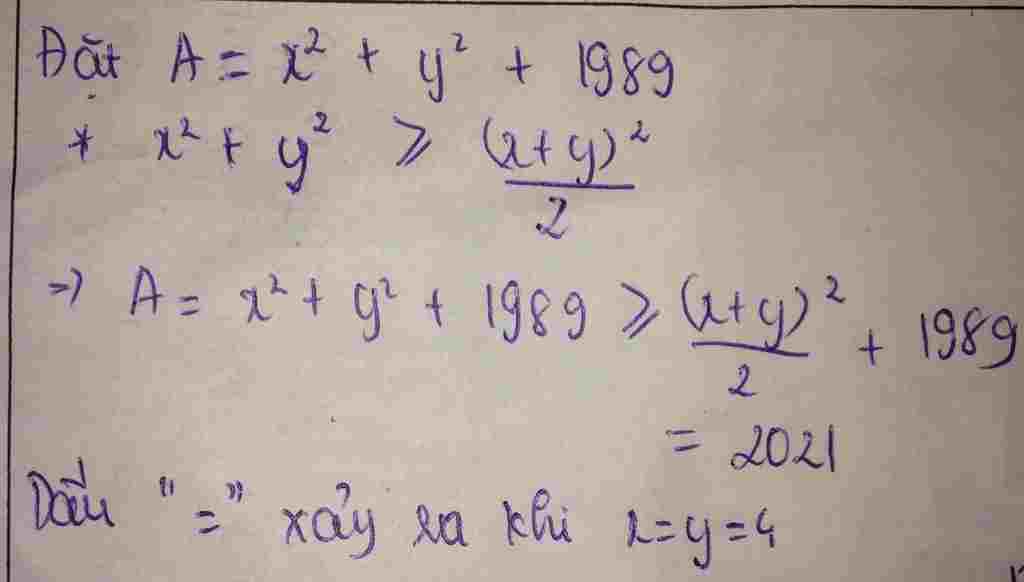 Đặt A = x² + y² + 1989
* x² + y² ≥ (x+y)²/2
=> A = x² + y² + 1989 ≥ (x+y)²/2 + 1989
= 2021
Dấu "=" xảy ra khi x=y=4